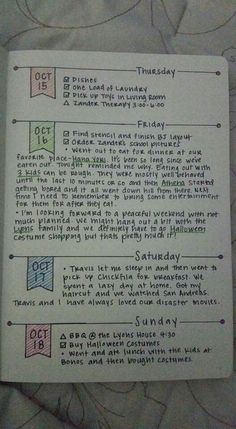 Thursday
OCT
15
☑ Dishes
☑ One Load of Laundry
☑ Pick up Toys in Living Room
△ Zander Therapy 3:00-6:00
Friday
OCT
16
☑ Find stencil and finish BJ layout
☑ Order Zander's school pictures
• Went out to eat for dinner at our
favorite place-Hana Yori. It's been so long since we've
eaten out. Tonight reminded me why. Eating out with
3 kids can be rough. They were mostly well behaved
until the last 10 minutes or so and then Athena started
getting bored and it all went down hill from there. Next
time I need to remember to bring some entertainment
for them for after they eat.
• I'm looking forward to a peaceful weekend with not
much planned. We might hang out a bit with the
Lyons family and we definitely have to go Halloween
costume shopping but thats pretty much it!
Saturday
OCT
17
• Travis let me sleep in and then went to
pick up Chickfila for breakfast. We
spent a lazy day at home. Got my
haircut and we watched San Andreas.
Travis and I have always loved our disaster movies.
Sunday
OCT
18
△ BBQ @ the Lyons House 4:30
☑ Buy Halloween Costumes
• Went and ate lunch with the kids at
Bonos and then bought costumes.